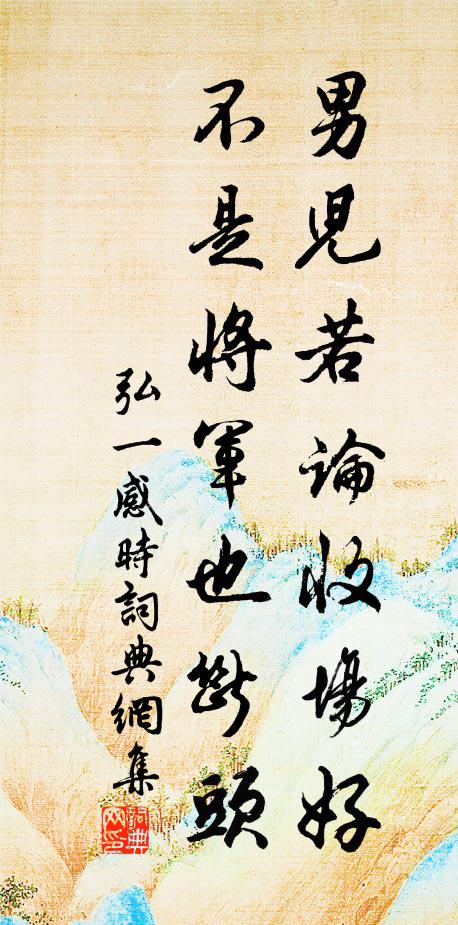 男兒若論收場好
不是將軍也斷頭
弘一感時詞典網集
詞典網印